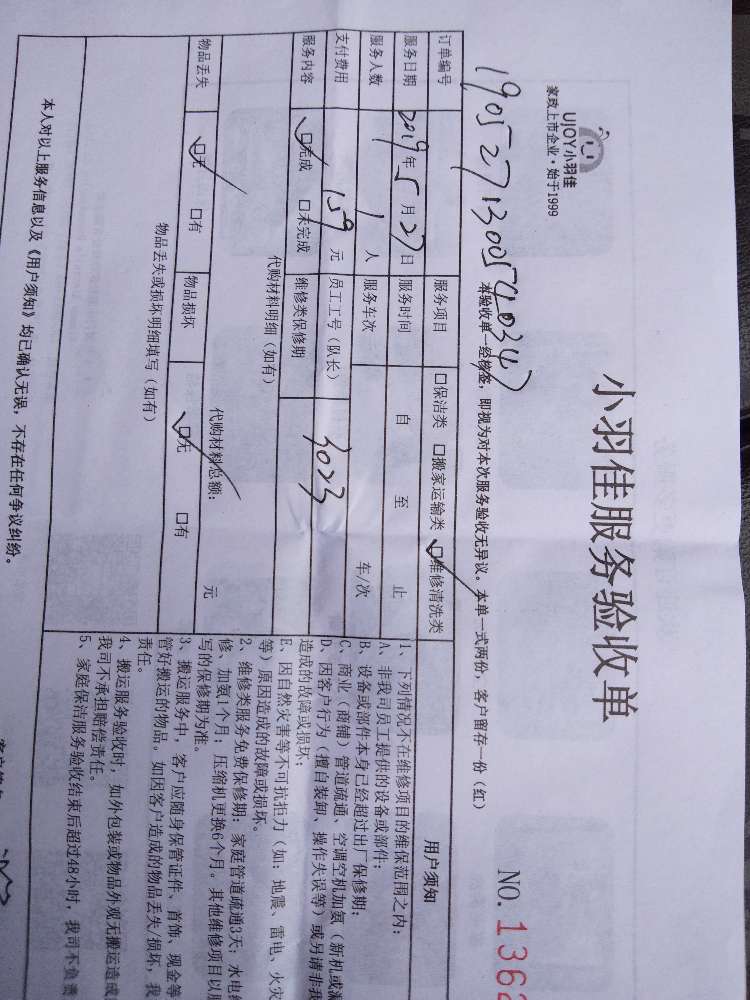 UJOY小羽佳
家政上市企业·始于1999
小羽佳服务验收单
NO. 1362
本验收单一经核签，即视为对本次服务验收无异议。本单一式两份，客户留存一份（红）
订单编号 190527130054
服务项目 □保洁类 □搬家运输类 ☑维修清洗类
服务日期 2019年5月27日 服务时间 自 至 止
服务人数 1人 服务车次 车/次
支付费用 159元 员工工号（队长） 3023
服务内容 ☑完成 □未完成 维修类保修期
代购材料明细（如有）
代购材料总额： 元
物品丢失 ☑无 □有 物品损坏 ☑无 □有
物品丢失或损坏明细填写（如有）
本人对以上服务信息以及《用户须知》均已确认无误，不存在任何争议纠纷。
用户须知
1、下列情况不在维修项目的维保范围之内：
A、非我司员工提供的设备或部件；
B、设备或部件本身已经超过出厂保修期；
C、商业（商铺）管道疏通、空调空机加氨（新机或漏
D、因客户行为（擅自装卸、操作失误等）或另请非我
造成的故障或损坏；
E、因自然灾害等不可抗拒力（如：地震、雷电、火灾
等）原因造成的故障或损坏。
2、维修类服务免费保修期：家庭管道疏通3天；水电维
修、加氨1个月；压缩机更换6个月。其他维修项目以服
写的保修期为准。
3、搬运服务中，客户应随身保管证件、首饰、现金等
管好搬运的物品。如因客户造成的物品丢失/损坏，我
责任。
4、搬运服务验收时，如外包装或物品外观无搬运造成
我司不承担赔偿责任。
5、家庭保洁服务验收结束后超过48小时，我司不负责